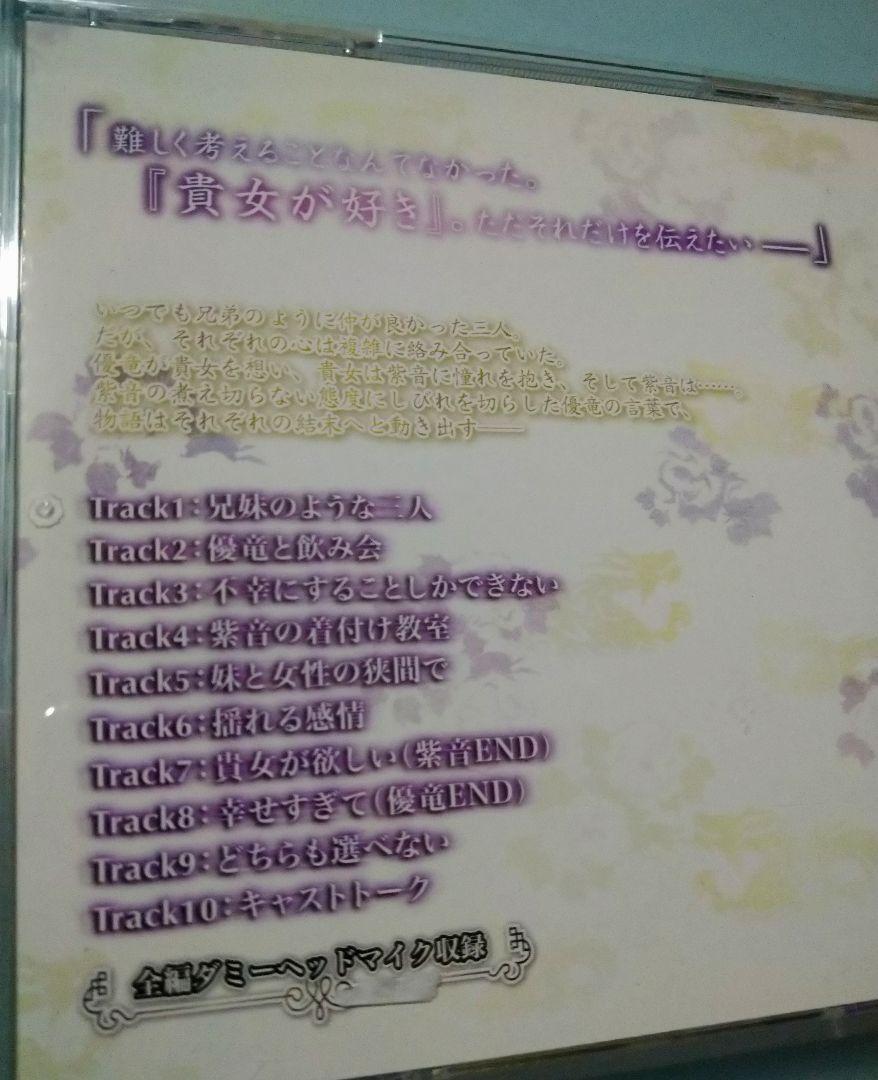 「難しく考えることなんてなかった。
『貴女が好き』。ただそれだけを伝えたい――」
いつでも兄弟のように仲が良かった三人。
だが、それぞれの心は複雑に絡み合っていた。
優竜が貴女を想い、貴女は紫音に憧れを抱き、そして紫音は……。
紫音の煮え切らない態度にしびれを切らした優竜の言葉で、
物語はそれぞれの結末へと動き出す――
Track1：兄妹のような三人
Track2：優竜と飲み会
Track3：不幸にすることしかできない
Track4：紫音の着付け教室
Track5：妹と女性の狭間で
Track6：揺れる感情
Track7：貴女が欲しい（紫音END）
Track8：幸せすぎて（優竜END）
Track9：どちらも選べない
Track10：キャストトーク
全編ダミーヘッドマイク収録